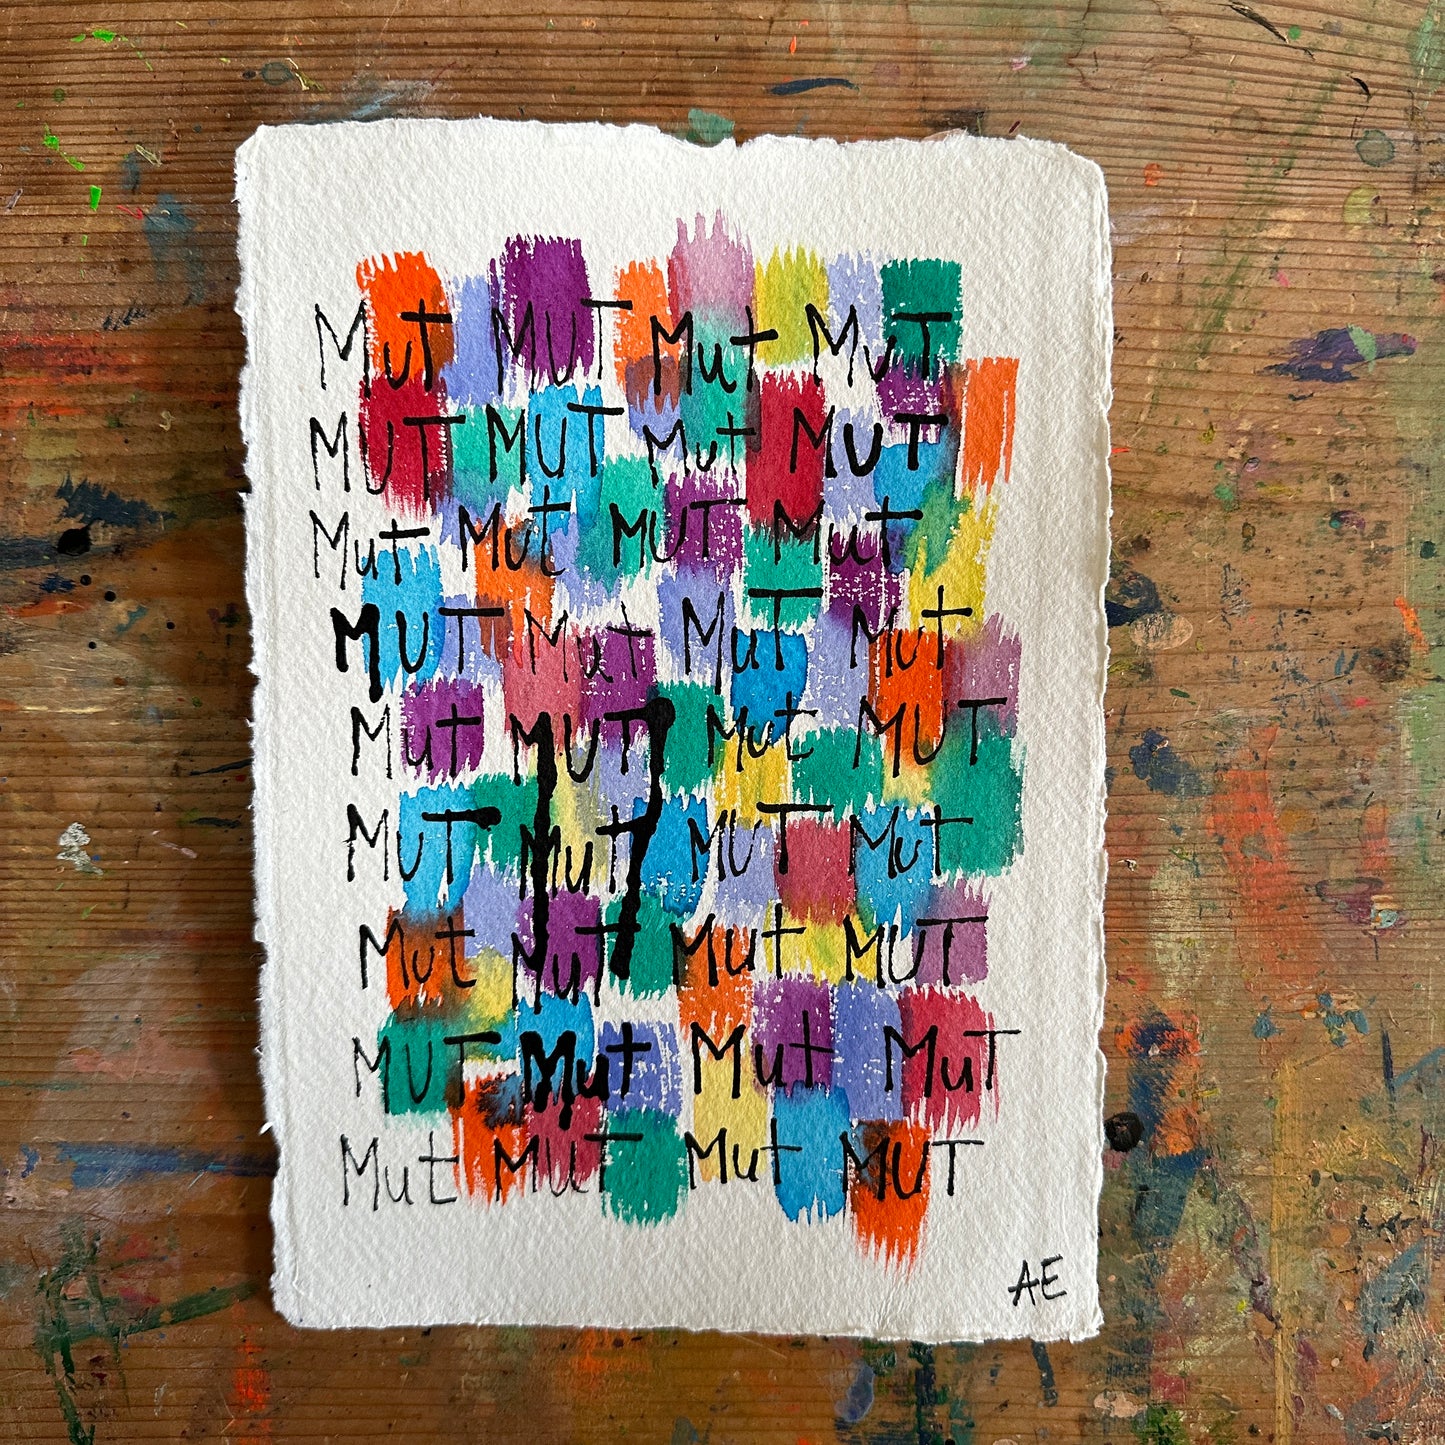 Mut MUT Mut MuT
MUT MUT Mut MUT
Mut Mut MUT Mut
MUT Mut MuT Mut
Mut MUT Mut MUT
MuT Mut MUT Mut
Mut MuT Mut MUT
MUT Mut Mut MuT
Mut MUT Mut MUT
AE